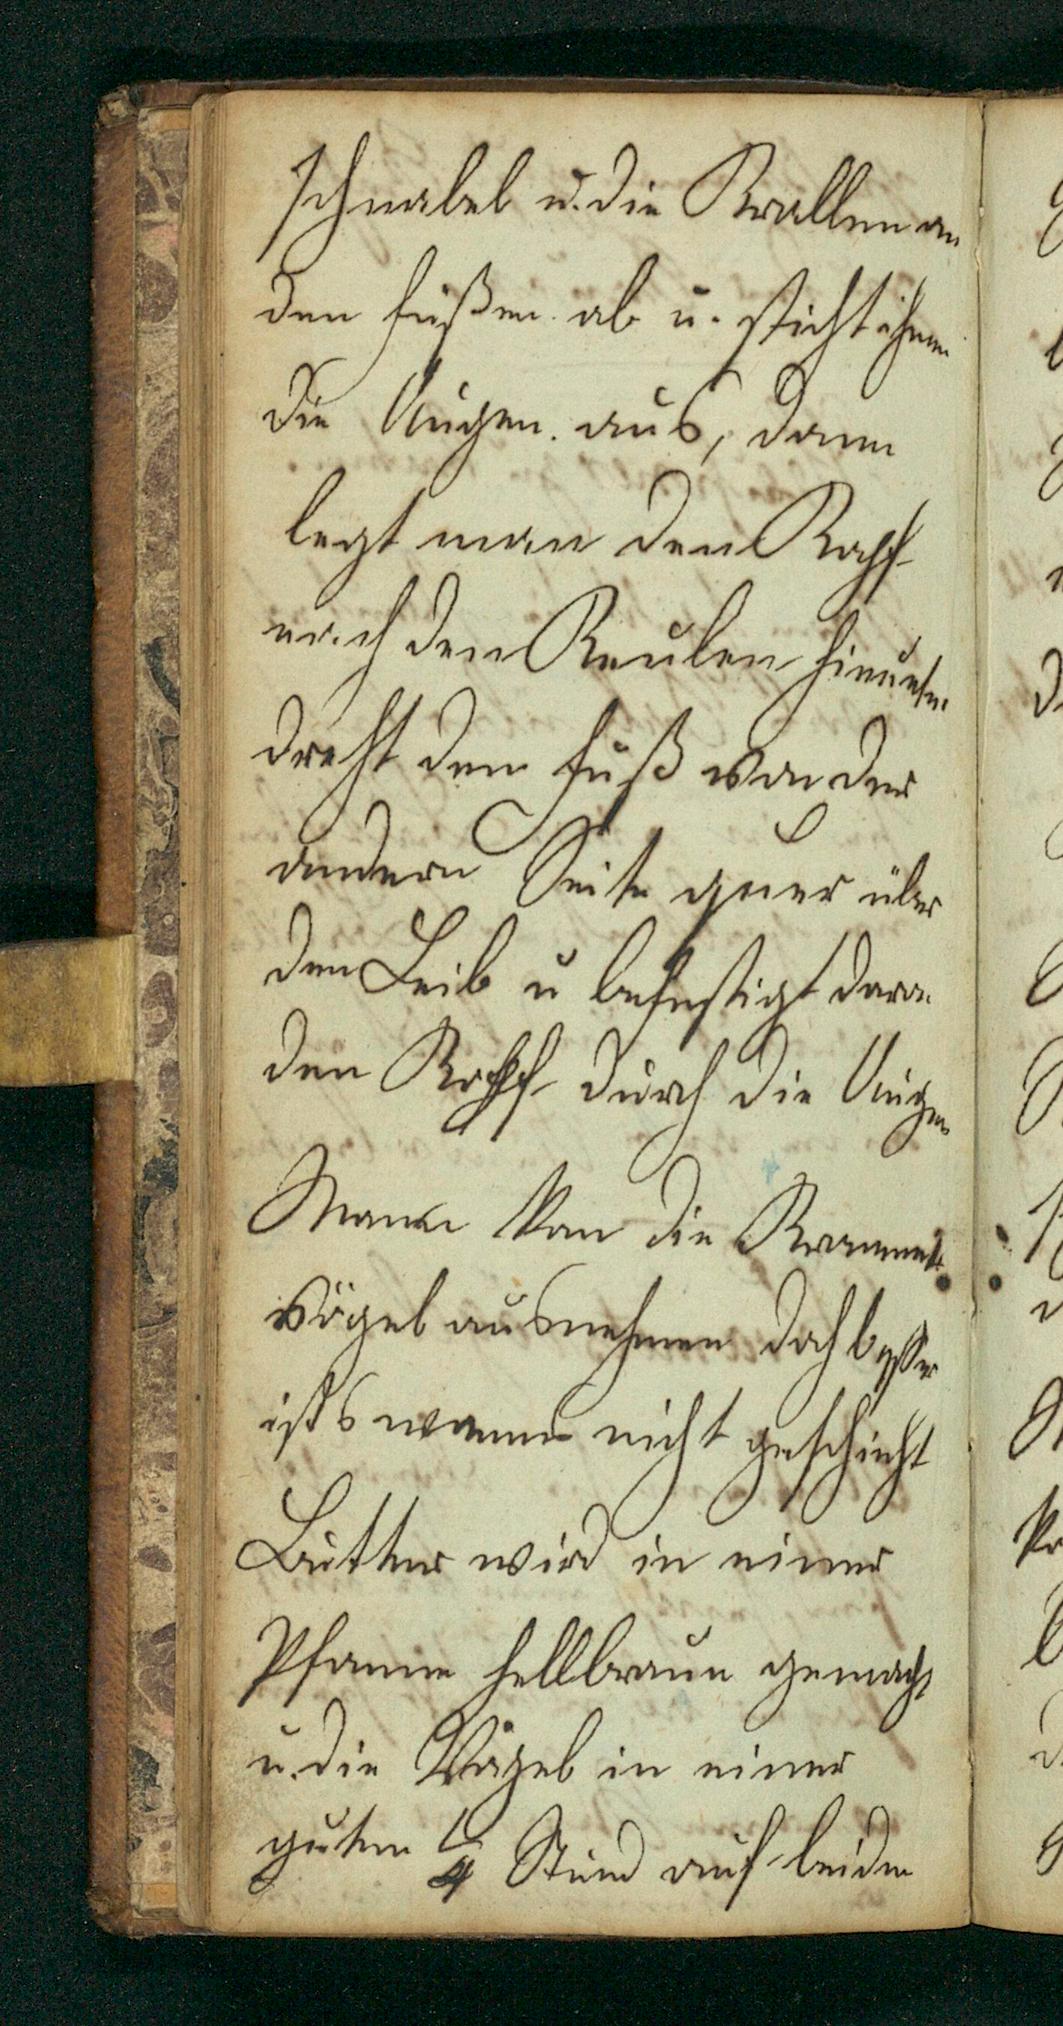 schnabel u. die Krallen an
den füßen ab u. sticht ihnen
die Augen aus, dann
legt man den Kopf
nach den Keulen hinunter
dreht den fuß von der
andern Seite quer über
den Leib u befestigt daran
den Kopf durch die Augen
Mann kan die Krammets
vögel ausnehmen doch besser
ists wenns nicht geschieht
Butter wird in einer
Pfanne hellbraun gemacht
u. die Vögel in einer
guten 1/4 Stund auf beiden